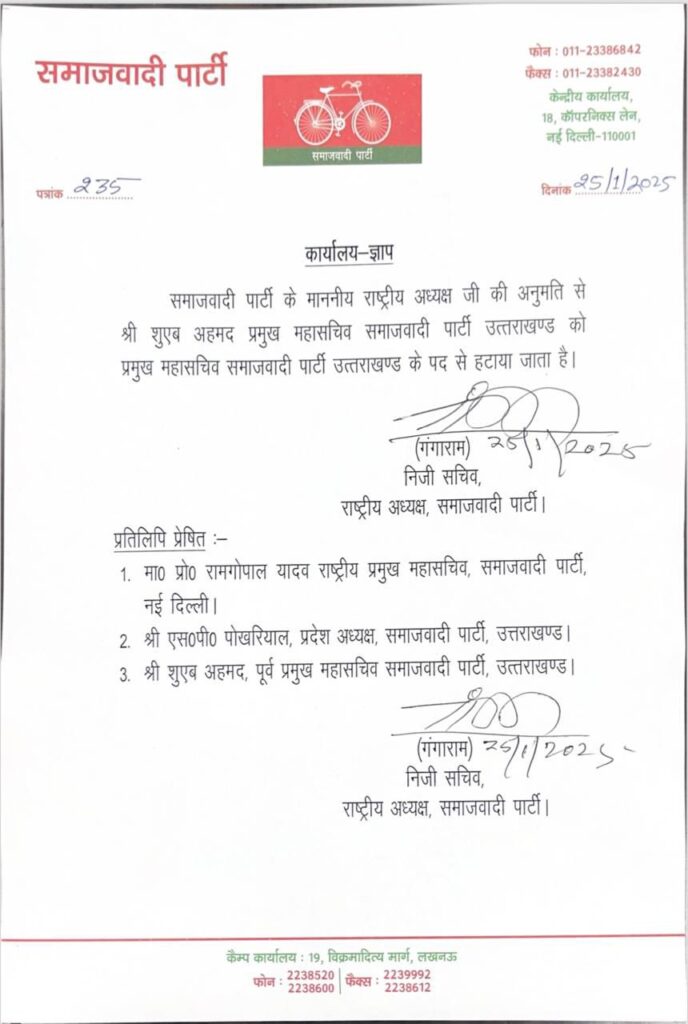 समाजवादी पार्टी
समाजवादी पार्टी
फोन : 011-23386842
फैक्स : 011-23382430
केन्द्रीय कार्यालय,
18, कॉपरनिक्स लेन,
नई दिल्ली-110001
पत्रांक 235
दिनांक 25/1/2025
कार्यालय-ज्ञाप
समाजवादी पार्टी के माननीय राष्ट्रीय अध्यक्ष जी की अनुमति से
श्री शुएब अहमद प्रमुख महासचिव समाजवादी पार्टी उत्तराखण्ड को
प्रमुख महासचिव समाजवादी पार्टी उत्तराखण्ड के पद से हटाया जाता है।
(गंगाराम) 25/1/2025
निजी सचिव,
राष्ट्रीय अध्यक्ष, समाजवादी पार्टी।
प्रतिलिपि प्रेषित :–
1. मा0 प्रो0 रामगोपाल यादव राष्ट्रीय प्रमुख महासचिव, समाजवादी पार्टी,
नई दिल्ली।
2. श्री एस0पी0 पोखरियाल, प्रदेश अध्यक्ष, समाजवादी पार्टी, उत्तराखण्ड।
3. श्री शुएब अहमद, पूर्व प्रमुख महासचिव समाजवादी पार्टी, उत्तराखण्ड।
(गंगाराम) 25/1/2025
निजी सचिव,
राष्ट्रीय अध्यक्ष, समाजवादी पार्टी।
कैम्प कार्यालय : 19, विक्रमादित्य मार्ग, लखनऊ
फोन : 2238520 फैक्स : 2239992
2238600 2238612